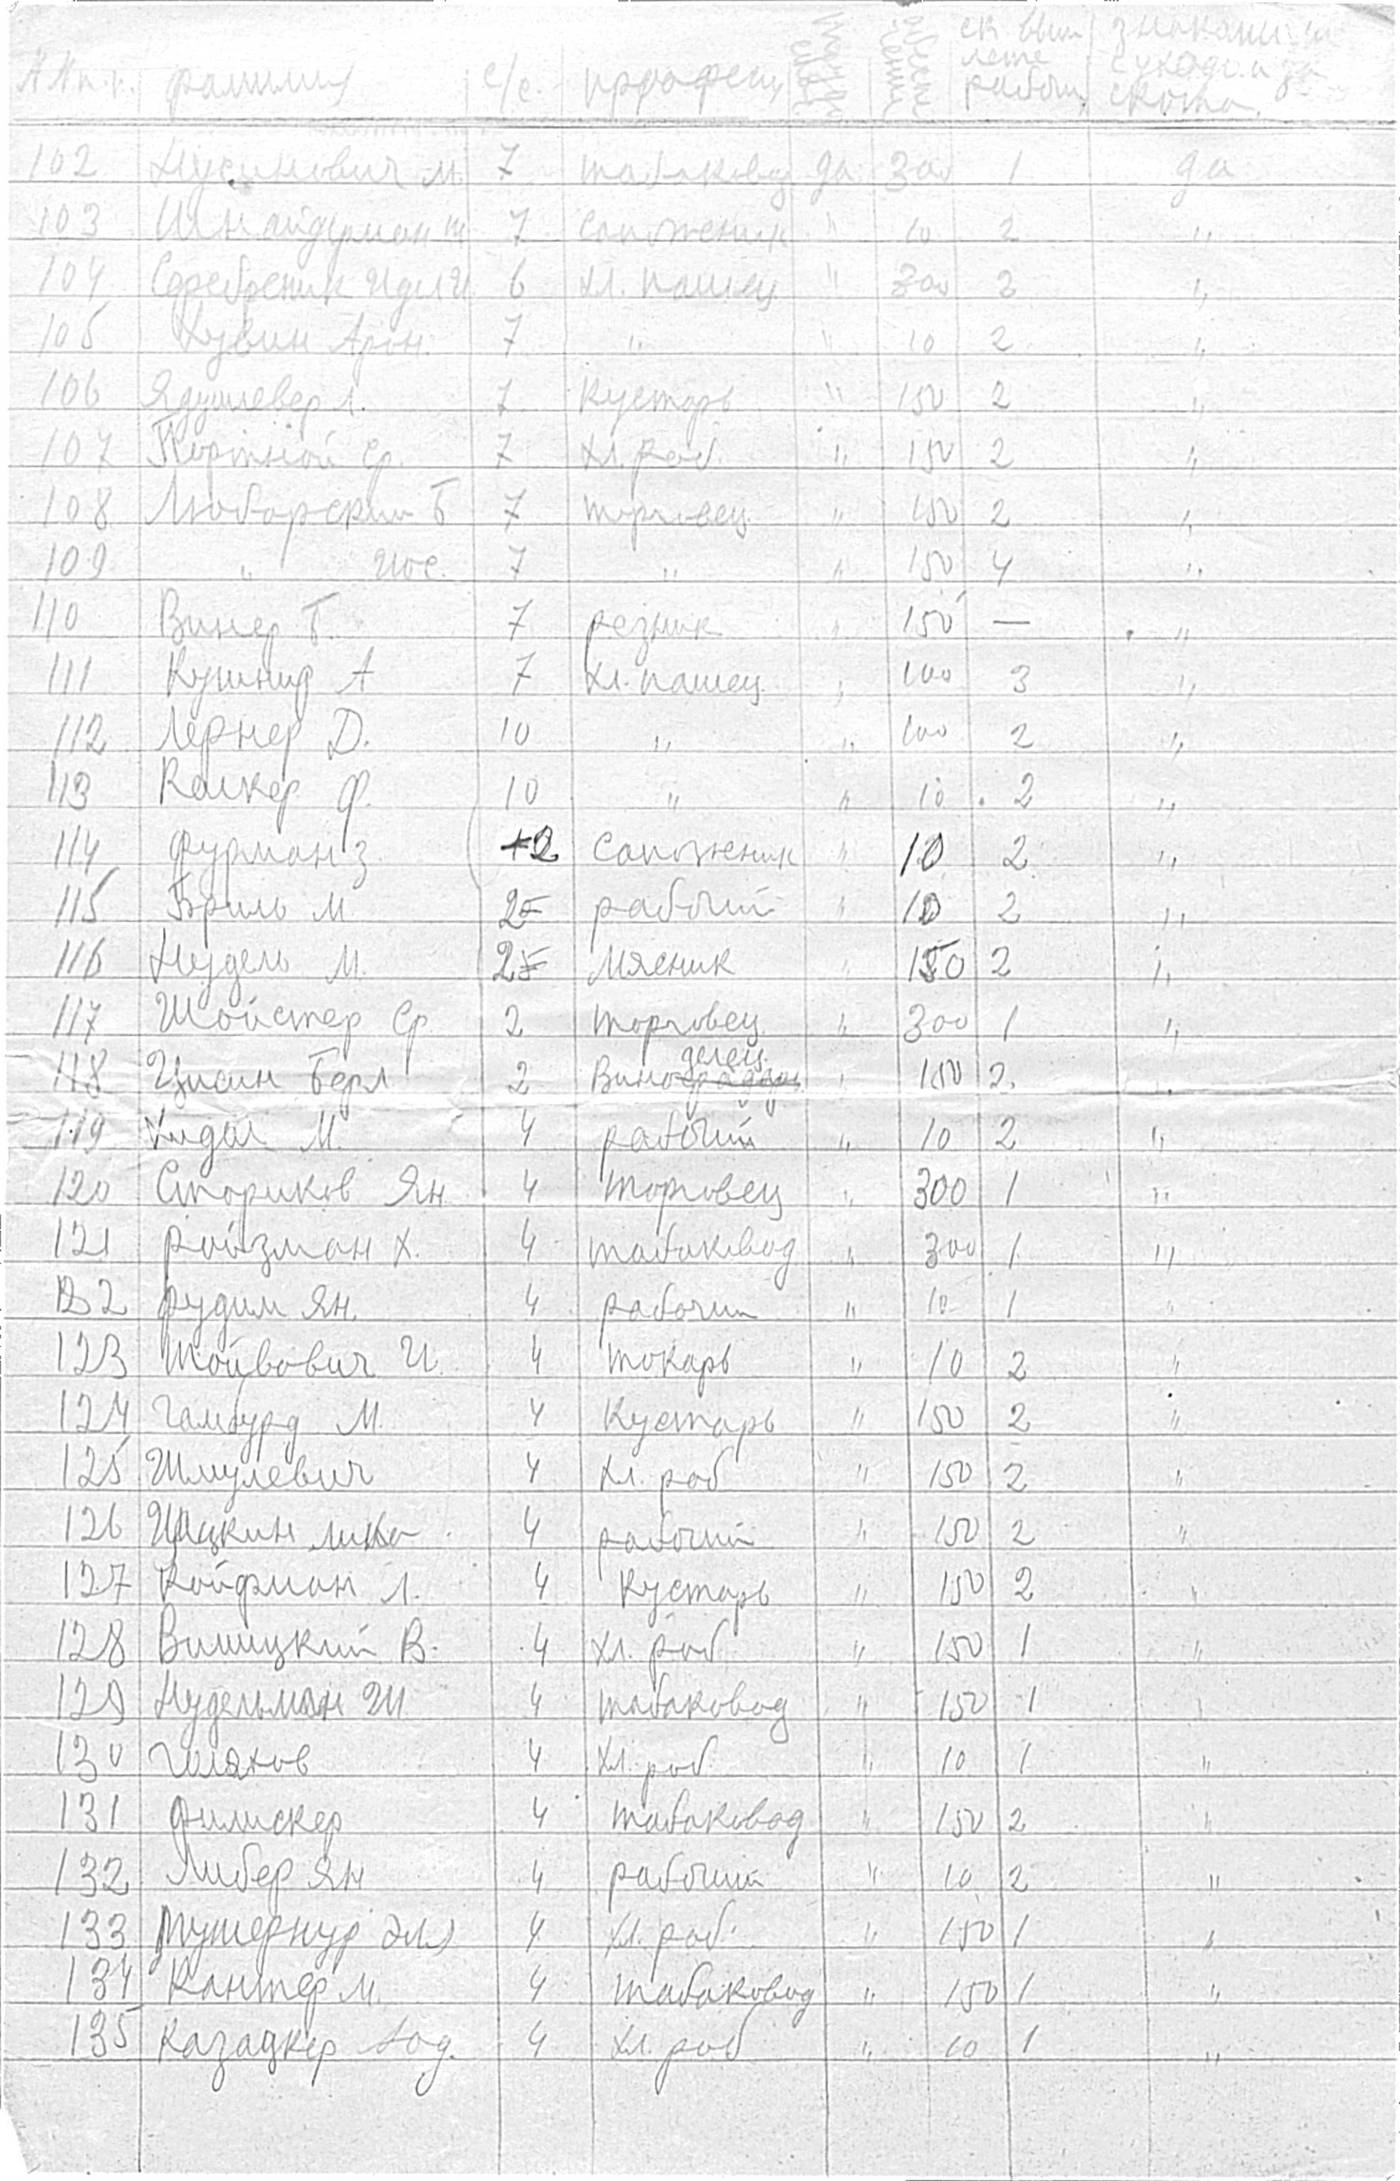 NN п.п. фамилия с/с. професи ск вып лете рабочи знакомы ли с уходом за скота
102 Нусинович М. 7 табаковод да 300 1 да
103 Шнайдерман Ш 7 сапожник " 10 2 "
104 Серебреник 6 хл. пашец " 300 3 "
105 Хувин Арон. 7 " " 10 2 "
106 7 Кустарь " 150 2 "
107 Портной Ср. 7 хл. роб. " 150 2 "
108 Любарский Б 7 торговец " 150 2 "
109 " Иос. 7 " " 150 4 "
110 Винер Б. 7 резник " 150 — "
111 Кушнир А 7 хл. пашец " 100 3 "
112 Лернер Д. 10 " " 100 2 "
113 Келкер Ф. 10 " " 10 2 "
114 Фурман З. 2 сапожник " 10 2 "
115 Бриль М. 2 рабочий " 10 2 "
116 Нудель М. 2 Мясник " 150 2 "
117 Шойстер Ср 2 торговец " 300 1 "
118 Цисин Берл 2 Виноделец " 150 2 "
119 М. 4 рабочий " 10 2 "
120 Сториков Ян 4 торговец " 300 1 "
121 Ройзман Х. 4 табаковод " 300 1 "
122 Рудим Ян. 4 рабочий " 10 1 "
123 Мойвович И. 4 токарь " 10 2 "
124 Гамбурд М. 4 Кустарь " 150 2 "
125 Шмулевич 4 хл. роб " 150 2 "
126 4 рабочий " 150 2 "
127 Койфман Л. 4 Кустарь " 150 2 "
128 Вилицкий В. 4 хл. роб " 150 1 "
129 Нудельман Ш 4 табаковод " 150 1 "
130 4 хл. роб. " 10 1 "
131 Филискер 4 табаковод " 150 2 "
132 Либер Ян 4 рабочий " 10 2 "
133 4 хл. роб. " 150 1 "
134 Кантер М. 4 табаковод " 150 1 "
135 Казацкер 4 хл. роб " 10 1 "